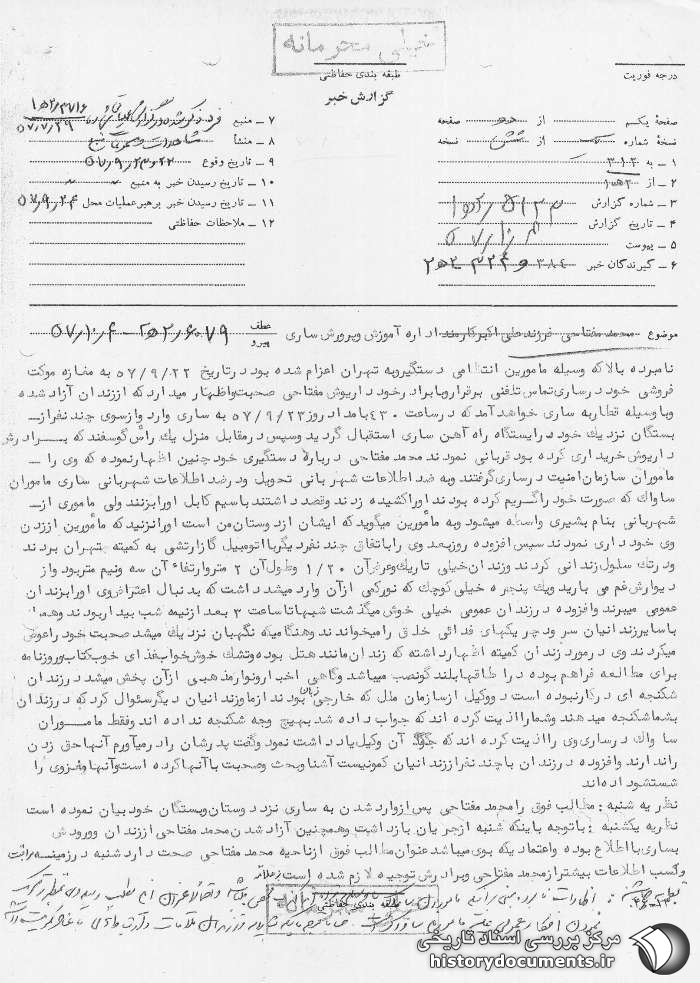 خیلی محرمانه
درجه فوریت
طبقه بندی حفاظتی
گزارش خبر
صفحهٔ یکم از دو صفحه
نسخهٔ شماره یک از شش نسخه
۱ ـ به ۳۱۲
۲ ـ از ۱۰ه۲
۳ ـ شماره گزارش
۴ ـ تاریخ گزارش
۵ ـ پیوست
۶ ـ گیرندگان خبر ۳۸۴ و ۳۲۴
۷ ـ منبع
۸ ـ منشأ
۹ ـ تاریخ وقوع ۲۲ و ۵۷/۹/۲۳
۱۰ ـ تاریخ رسیدن خبر به منبع
۱۱ ـ تاریخ رسیدن خبر برهبر عملیات محل ۵۷/۹/۲۴
۱۲ ـ ملاحظات حفاظتی
موضوع محمد مفتاحی فرزند علی اکبر کارمند اداره آموزش وپرورش ساری
عطف
پیرو
نامبرده بالاکه وسیله مامورین انتظامی دستگیروبه تهران اعزام شده بود درتاریخ ۵۷/۹/۲۲ به مغازه موکت
فروشی خود درساری تماس تلفنی برقراروبابرادرخود داریوش مفتاحی صحبت واظهار میدارد که اززندان آزاد شده
وباوسیله قطاربه ساری خواهدآمد که درساعت ۴۳۰ بامداد روز ۵۷/۹/۲۳ به ساری وارد وازسوی چند نفراز
بستگان نزدیك خود درایستگاه راه آهن ساری استقبال گردید وسپس درمقابل منزل یك راس گوسفند که برادرش
داریوش خریداری کرده بود قربانی نمودند محمد مفتاحی دربارهٔ دستگیری خود چنین اظهارنموده که وی را
ماموران سازمان امنیت درساری گرفتند وبه ضد اطلاعات شهربانی تحویل ودرضد اطلاعات شهربانی ساری ماموران
ساواك که صورت خود راگریم کرده بودند اوراکشیده زدند وقصد داشتند باسیم کابل اورابزنند ولی ماموری از
شهربانی بنام بشیری واسطه میشود وبه مأمورین میگوید که ایشان ازدوستان من است اورانزنید که مأمورین اززدن
وی خود داری نمودند سپس افزوده روزبعد وی راباتفاق چند نفردیگرباتومبیل گازارتشی به کمیته تهران بردند
ودرتك سلول زندانی کردند وزندان خیلی تاریك وعرض آن ۱/۲۰ وطول آن ۲ متروارتفاء آن سه ونیم متربود واز
دیوارش غم می بارید ویك پنجره خیلی کوچك که نورکمی ازآن وارد میشد داشت که بدنبال اعتراض وی اورابزندان
عمومی میبرند وافزوده درزندان عمومی خیلی خوش میگذشت شبهاتاساعت ۳ بعد ازنیمه شب بیداربودند وهمه
باسایرزندانیان سرود چریکهای فدائی خلق رامیخواندند وهنگامیکه نگهبان نزدیك میشد صحبت خود راعوض
میکردند وی درمورد زندان کمیته اظهارداشته که زندان مانند هتل بوده وتشك خوش خواب غذای خوب کتاب وروزنامه
برای مطالعه فراهم بوده در اطاقهابلندگونصب میباشد وگاهی اخبارونوارمذهبی ازآن پخش میشد درزندان
شکنجه ای درکارنبوده است دووکیل ازسازمان ملل که خارجی زبان بودند ازماوزندانیان دیگرسئوال کردکه درزندان
بشماشکنجه میدهند وشمارااذیت کرده اند که جواب داده شد بهیچ وجه شکنجه نداده اند وفقط ماموران
ساواك درساری وی رااذیت کرده اند که آن وکیل یادداشت نمود وگفت پدرشان رادرمیآورم آنهاحق زدن
راندارند وافزوده درزندان باچند نفراززندانیان کمونیست آشناوبحث وصحبت باآنهاکرده است وآنهامغزوی را
شستشوداده اند
نظریه شنبه : مطالب فوق رامحمد مفتاحی پس ازواردشدن به ساری نزد دوستان وبستگان خود بیان نموده است
نظریه یکشنبه : باتوجه باینکه شنبه ازجریان بازداشت وهمچنین آزادشدن محمد مفتاحی اززندان وورودش
بساری بااطلاع بوده واعتماد یکه بوی میباشد عنوان مطالب فوق ازناحیه محمد مفتاحی صحت دارد شنبه درزمینه مراقبت
وکسب اطلاعات بیشترازمحمد مفتاحی وبرادرش توجیه لازم شده است
طبقه بندی حفاظتی
مرکز بررسی اسناد تاریخی
historydocuments.ir